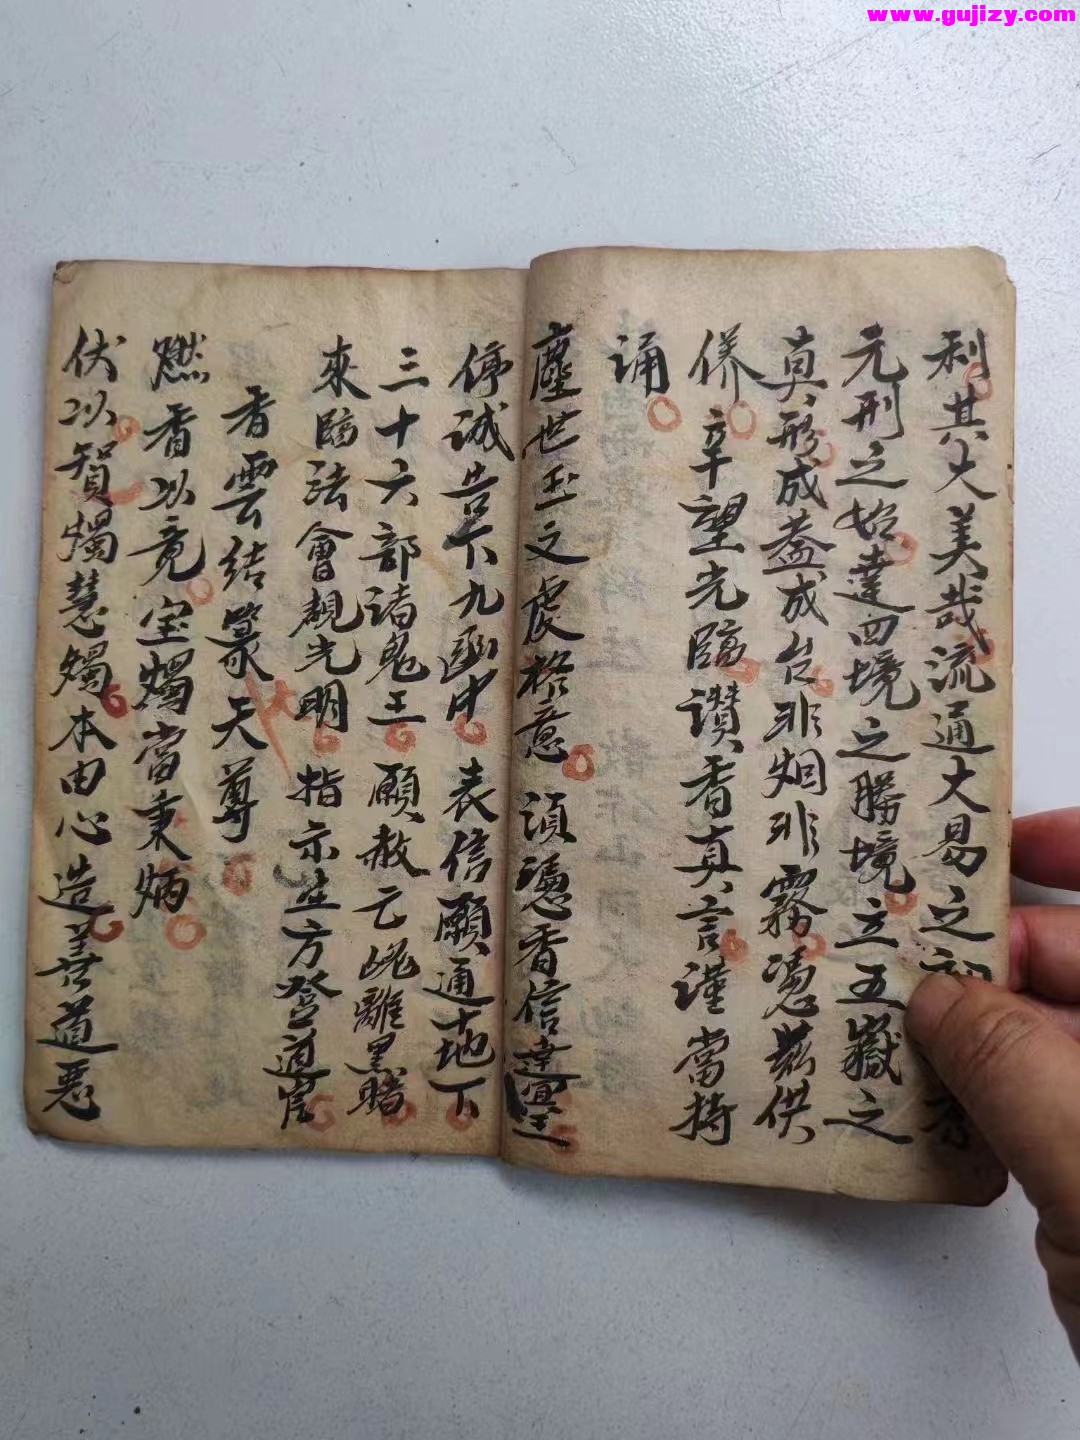 www.gujizy.com
利其大美哉流通大易之初
元刑之始達四境之勝境立五嶽之
真形成蓋成台非烟非霧憑茲供
侪辛望光臨讚香真言謹當持
誦
塵世玉之虔格意須憑香信達
停誠告下九幽中表信願通十地下
三十六部诸鬼王願赦亡魂離黑暗
來臨法會覩光明指示生方登道岸
香雲結篆天尊
燃香以竟宝燭當秉炳
伏以智燭慧燭本由心造善道惡